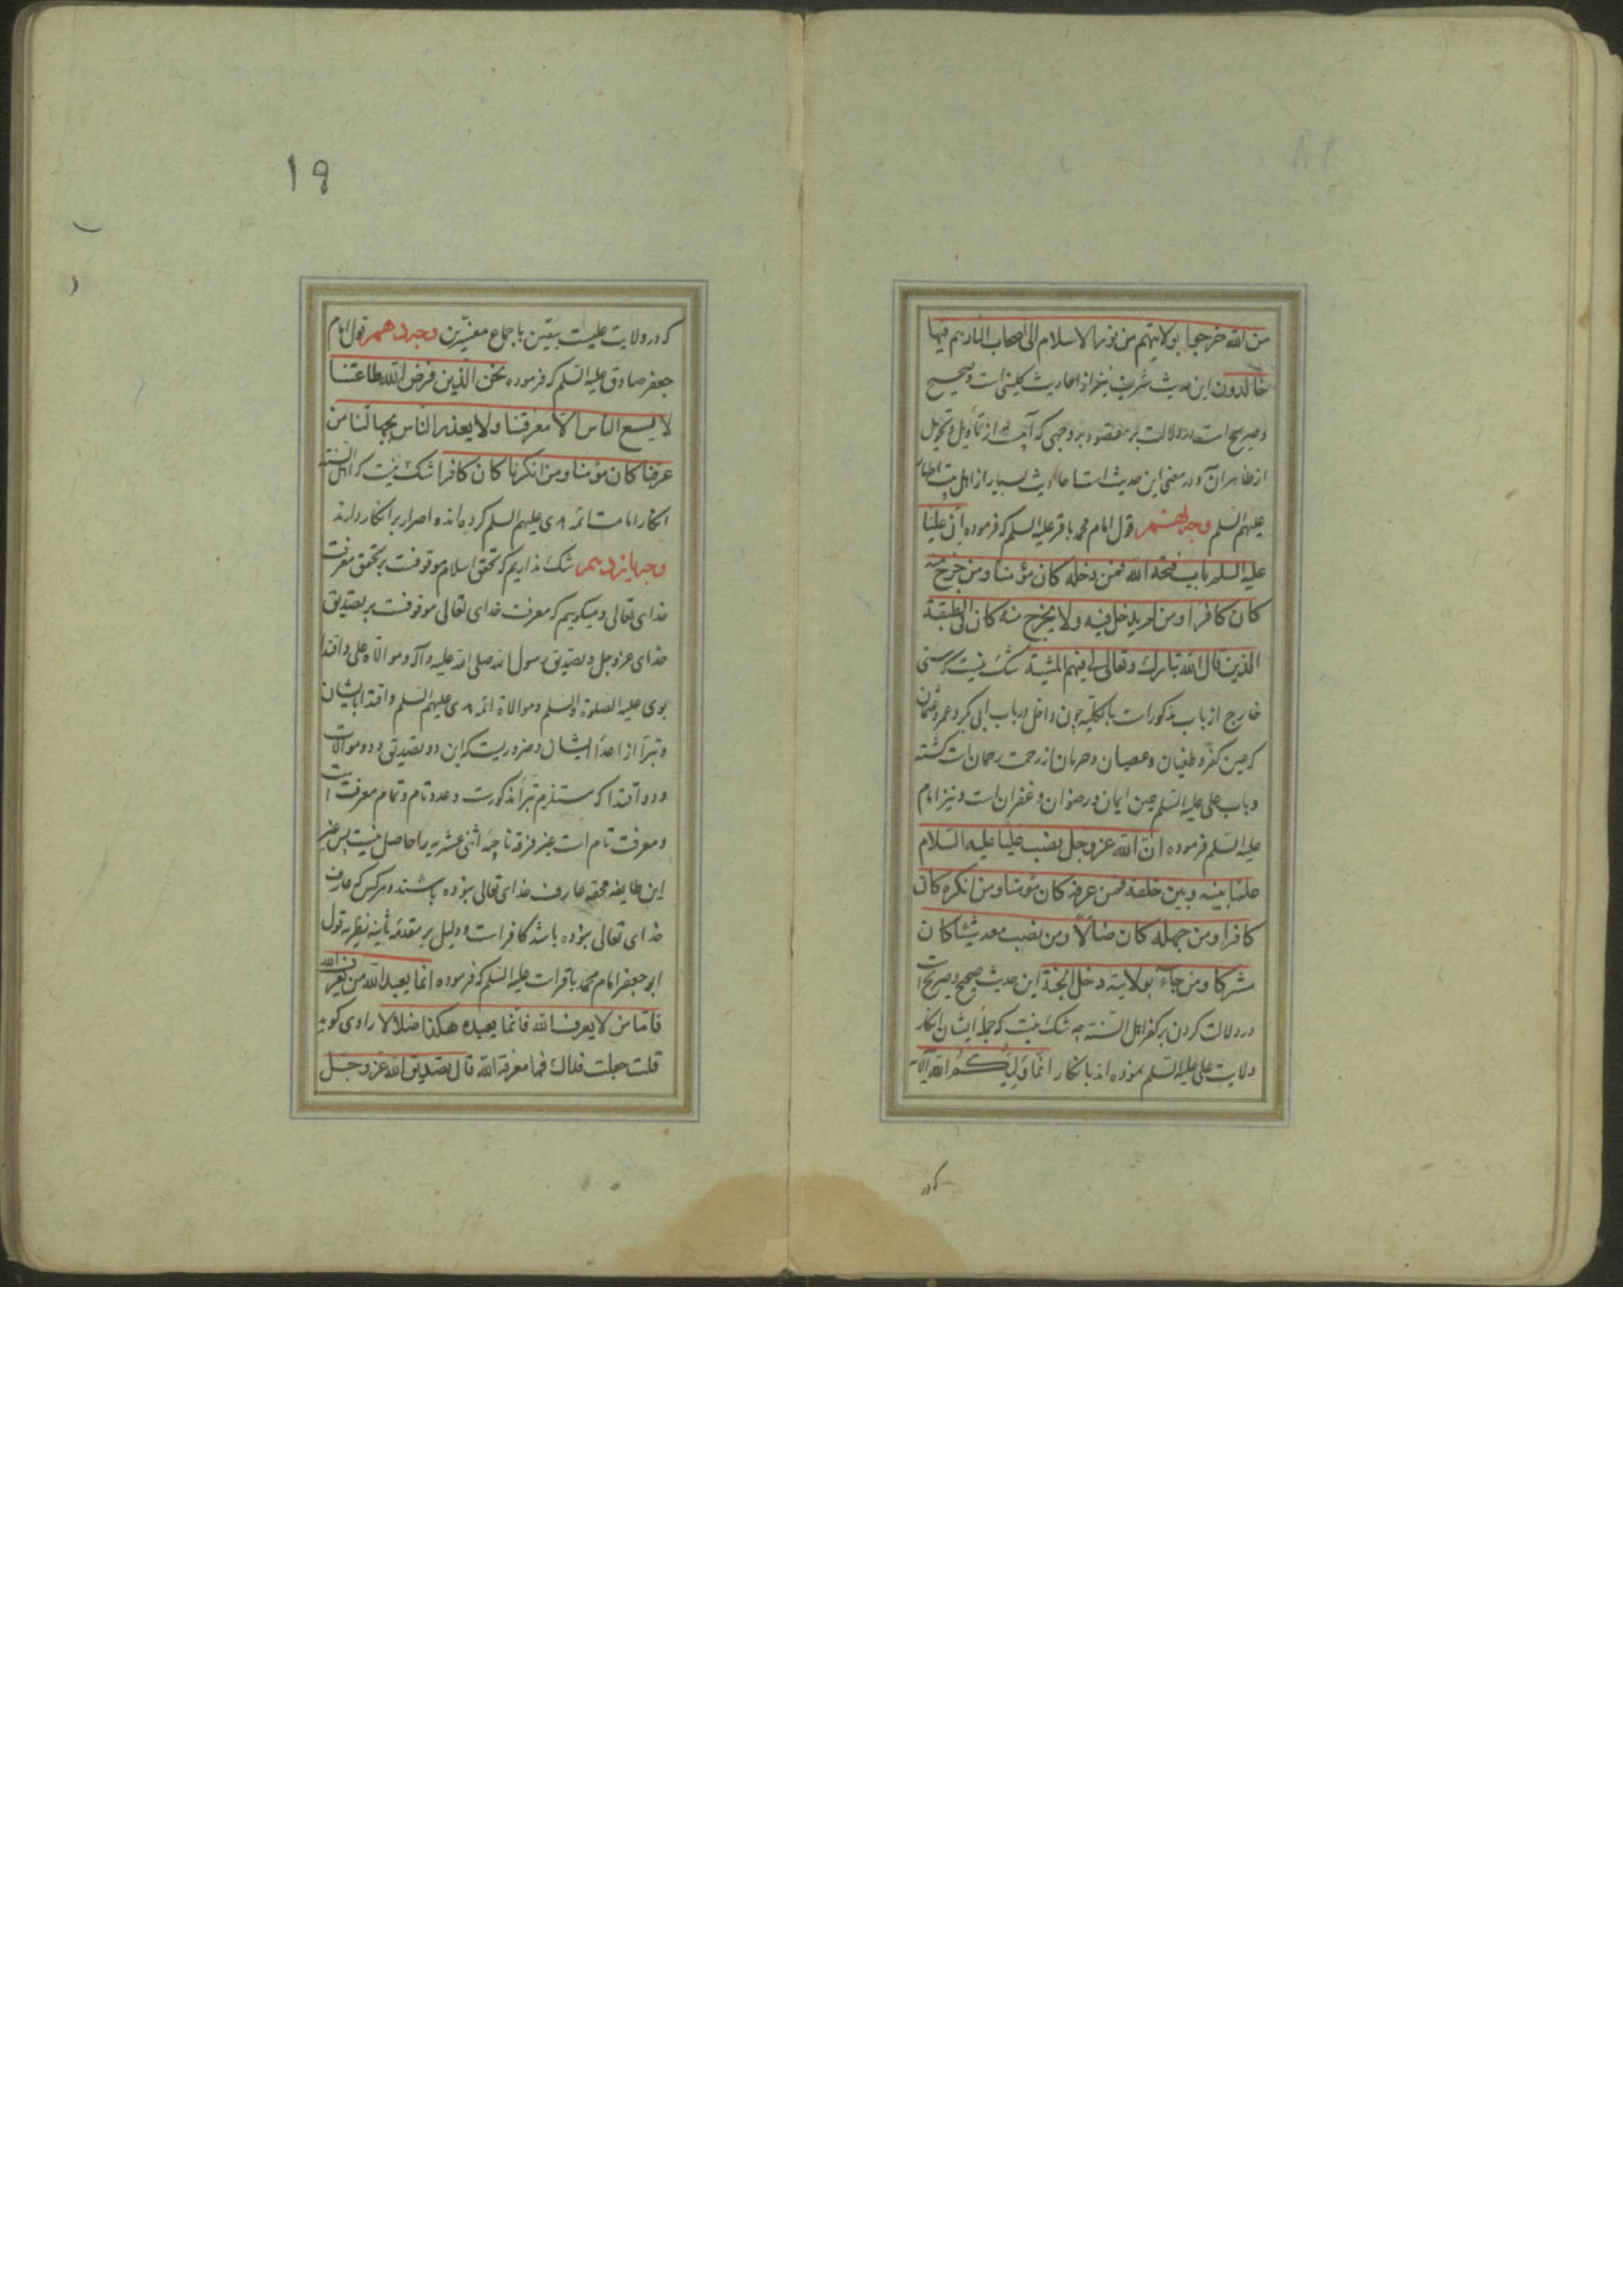 من الله خرجوا بولايتهم من نور الاسلام الى اصحاب النار هم فيها
خالدون این حدیث شریف نیز از احادیث کلینی است و صحیح
و صریح است در دلالت بر مقصود بر وجهی که از تأویل و تحویل
از ظاهر آن و در معنی این حدیث است احادیث بسیار از اهل بیت اطهار
علیهم السلم وجه نهم قول امام محمد باقر علیه السلم که فرموده ان علیا
علیه السلم باب فتحه الله فمن دخله کان مؤمنا ومن خرج منه
کان کافرا ومن لم یدخل فیه ولا یخرج منه کان فی الطبقة
الذین قال الله تبارک وتعالی لی فیهم المشیة شک نیست که سنی
خارج از باب مذکور است بالکلیه چون داخل در باب ابی بکر و عمر و عثمان
که عین کفر و طغیان و عصیان و حرمان از رحمت رحمان است گشته
و باب علی علیه السلم عین ایمان و رضوان و غفران است و نیز امام
علیه السلم فرموده انّ الله عز وجل نصب علیا علیه السلام
علما بینه وبین خلقه فمن عرفه کان مؤمنا ومن انکره کان
کافرا ومن جهله کان ضالا ومن نصب معه شیئا کان
مشرکا ومن جاء بولایته دخل الجنة این حدیث صحیح و صریح است
در دلالت کردن بر کفر اهل السنه چه شک نیست که جمله ایشان انکار
ولایت علی علیه السلم نموده اند بانکار انما ولیکم الله الآیه
که در
۱۹
که در ولایت علیست بیقین باجماع مفسرین وجه دهم قول امام
جعفر صادق علیه السلم که فرموده نحن الذین فرض الله طاعتنا
لا یسع الناس الا معرفتنا ولا یعذر الناس بجهالتنا من
عرفنا کان مؤمنا ومن انکرنا کان کافرا شک نیست که اهل السنه
انکار امامت ائمه هدی علیهم السلم کرده اند و اصرار بر انکار دارند
وجه یازدهم شک نداریم که تحقق اسلام موقوفست بر تحقق معرفت
خدای تعالی و میکوییم که معرفت خدای تعالی موقوفست بر تصدیق
خدای عز وجل و تصدیق رسول الله صلی الله علیه و آله و موالاة علی و اقتدا
بوی علیه الصلوة والسلم و موالاة ائمه هدی علیهم السلم و اقتدا بایشان
و تبرا از اعدا ایشان و ضروریست که این دو تصدیق و دو موالات
و دو اقتدا که مستلزم تبرا مذکورست و عدد تام و تمام معرفت است
و معرفت تام است غیر فرقه ناجیه اثنی عشریه را حاصل نیست پس غیر
این طایفه محقه عارف خدای تعالی نبوده باشند و هر کس که عارف
خدای تعالی نبوده باشد کافر است و دلیل بر مقدمه ثانیه نظریه قول
ابو جعفر امام محمد باقر است علیه السلم که فرموده انما یعبد الله من یعرف الله
فاما من لا یعرف الله فانما یعبده هکذا ضلالا راوی کوید
قلت جعلت فداك فما معرفة الله قال تصدیق الله عز وجل